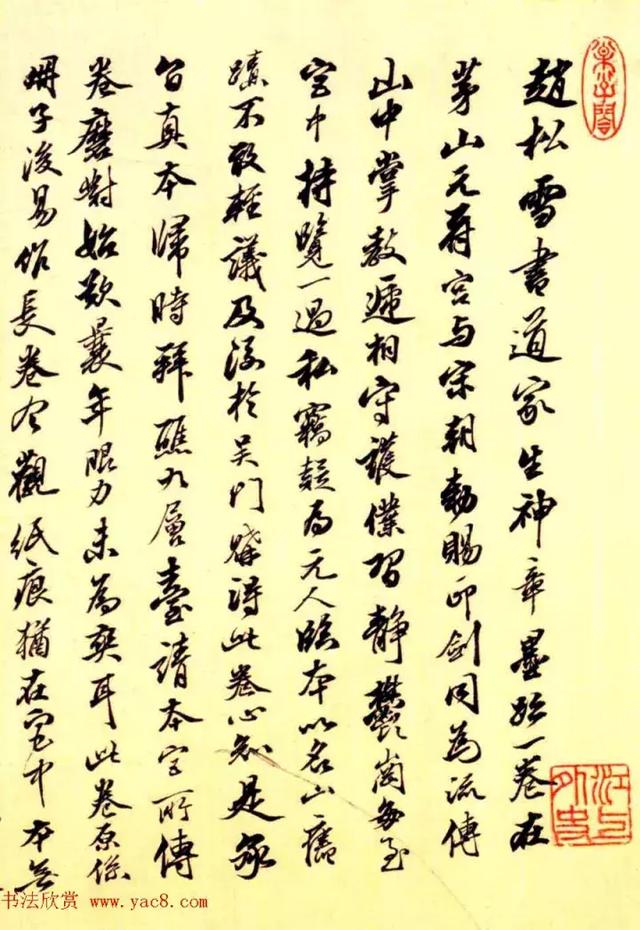 趙松雪書道家生神章墨跡一卷在
茅山元符宮与宋朝勅賜印劍同為流傳
山中掌教遞相守護僕習靜鬱崗每至
宮中持覽一過私竊疑為元人臨本以名山舊
蹟不敢輕議及後於吳門購得此卷心知是承
旨真本歸時拜醮九層臺請本宮所傳
卷磨對始歎曩年眼力未為爽耳此卷原係
冊子後易作長卷今觀紙痕猶在宮中本無
江上外史
书法欣赏 www.yac8.com